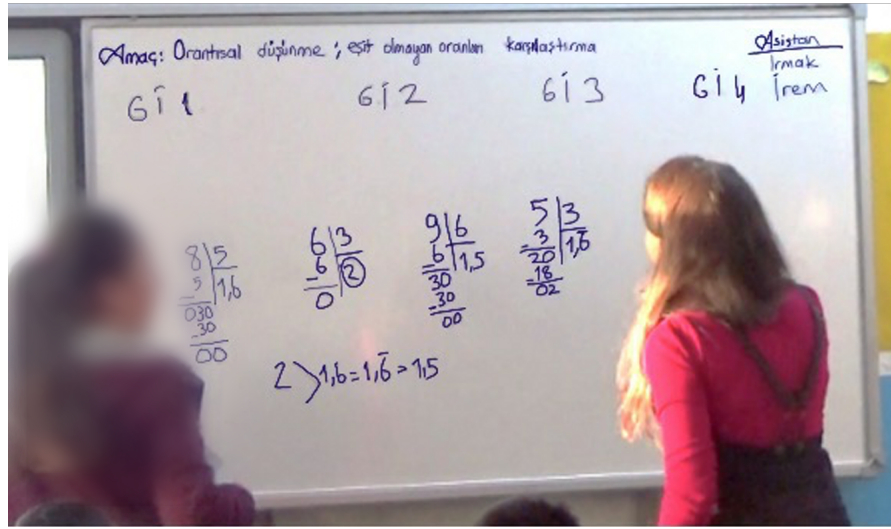 Amaç: Orantısal düşünme ; eşit olmayan oranları karşılaştırma
Asistan
Irmak
İrem
Gİ 1
Gİ 2
Gİ 3
Gİ 4
8 5
- 5 1,6
030
- 30
00
6 3
- 6 2
0
9 6
- 6 1,5
30
- 30
00
5 3
- 3 1,6̅
20
- 18
02
2 > 1,6 = 1,6̅ > 1,5